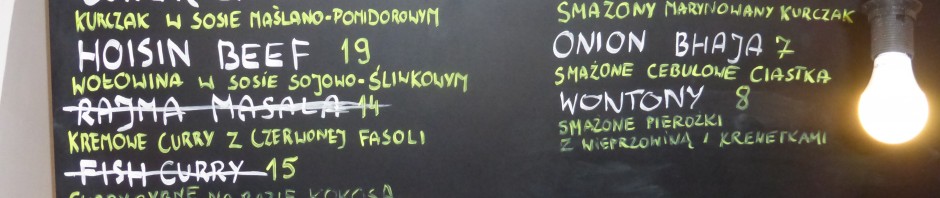 KURCZAK W SOSIE MAŚLANO-POMIDOROWYM
HOISIN BEEF 19
WOŁOWINA W SOSIE SOJOWO-ŚLIWKOWYM
RAJMA MASALA 14
KREMOWE CURRY Z CZERWONEJ FASOLI
FISH CURRY 15
NA BAZIE KOKOSA
SMAŻONY MARYNOWANY KURCZAK
ONION BHAJA 7
SMAŻONE CEBULOWE CIASTKA
WONTONY 8
SMAŻONE PIEROŻKI
Z WIEPRZOWINĄ I KREWETKAMI